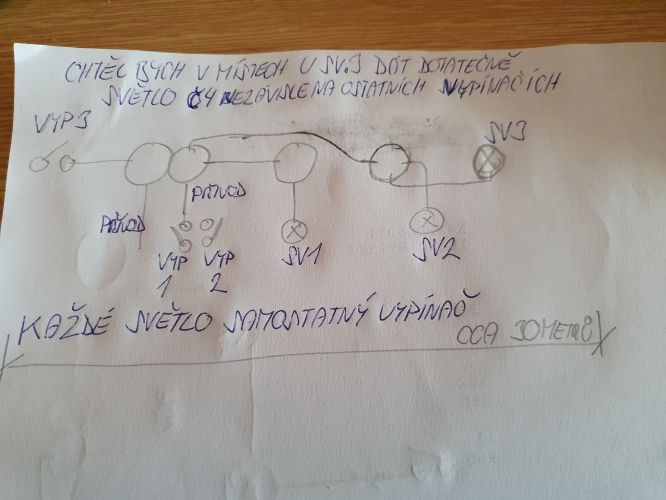 CHTĚL BYCH V MÍSTECH U SV.3 DÁT DOTATEČNĚ
SVĚTLO Č4 NEZÁVISLE NA OSTATNÍCH VYPÍNAČÍCH
VYP3
SV3
PŘÍVOD
PŘÍVOD
VYP
1
VYP
2
SV1
SV2
KAŽDÉ SVĚTLO SAMOSTATNÝ VYPÍNAČ
CCA 30METRŮ